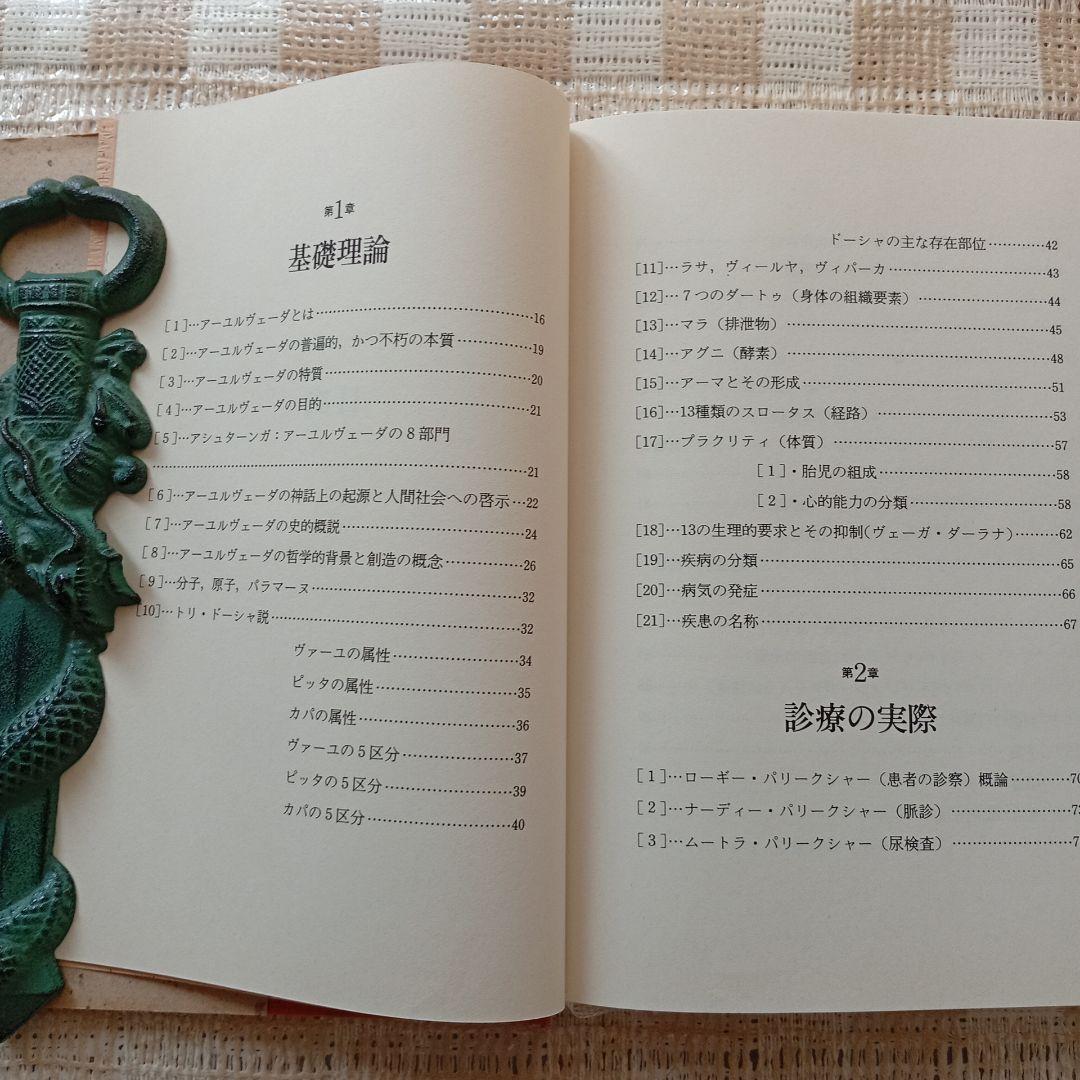 第1章
基礎理論
[1]…アーユルヴェーダとは……………………16
[2]…アーユルヴェーダの普遍的，かつ不朽の本質…………19
[3]…アーユルヴェーダの特質……………………20
[4]…アーユルヴェーダの目的……………………21
[5]…アシュターンガ：アーユルヴェーダの8部門
……………………………………21
[6]…アーユルヴェーダの神話上の起源と人間社会への啓示…22
[7]…アーユルヴェーダの史的概説……………………24
[8]…アーユルヴェーダの哲学的背景と創造の概念…………26
[9]…分子，原子，パラマーヌ……………………32
[10]…トリ・ドーシャ説……………………………32
ヴァーユの属性………………34
ピッタの属性………………35
カパの属性………………36
ヴァーユの5区分………………37
ピッタの5区分………………39
カパの5区分………………40
ドーシャの主な存在部位…………42
[11]…ラサ，ヴィールヤ，ヴィパーカ………………43
[12]…7つのダートゥ（身体の組織要素）………………44
[13]…マラ（排泄物）……………………………45
[14]…アグニ（酵素）……………………………48
[15]…アーマとその形成……………………………51
[16]…13種類のスロータス（経路）…………………53
[17]…プラクリティ（体質）……………………………57
[1]・胎児の組成…………………58
[2]・心的能力の分類………………58
[18]…13の生理的要求とその抑制(ヴェーガ・ダーラナ)………62
[19]…疾病の分類……………………………………65
[20]…病気の発症……………………………………66
[21]…疾患の名称……………………………………67
第2章
診療の実際
[1]…ローギー・パリークシャー（患者の診察）概論…………70
[2]…ナーディー・パリークシャー（脈診）…………………
[3]…ムートラ・パリークシャー（尿検査）…………………